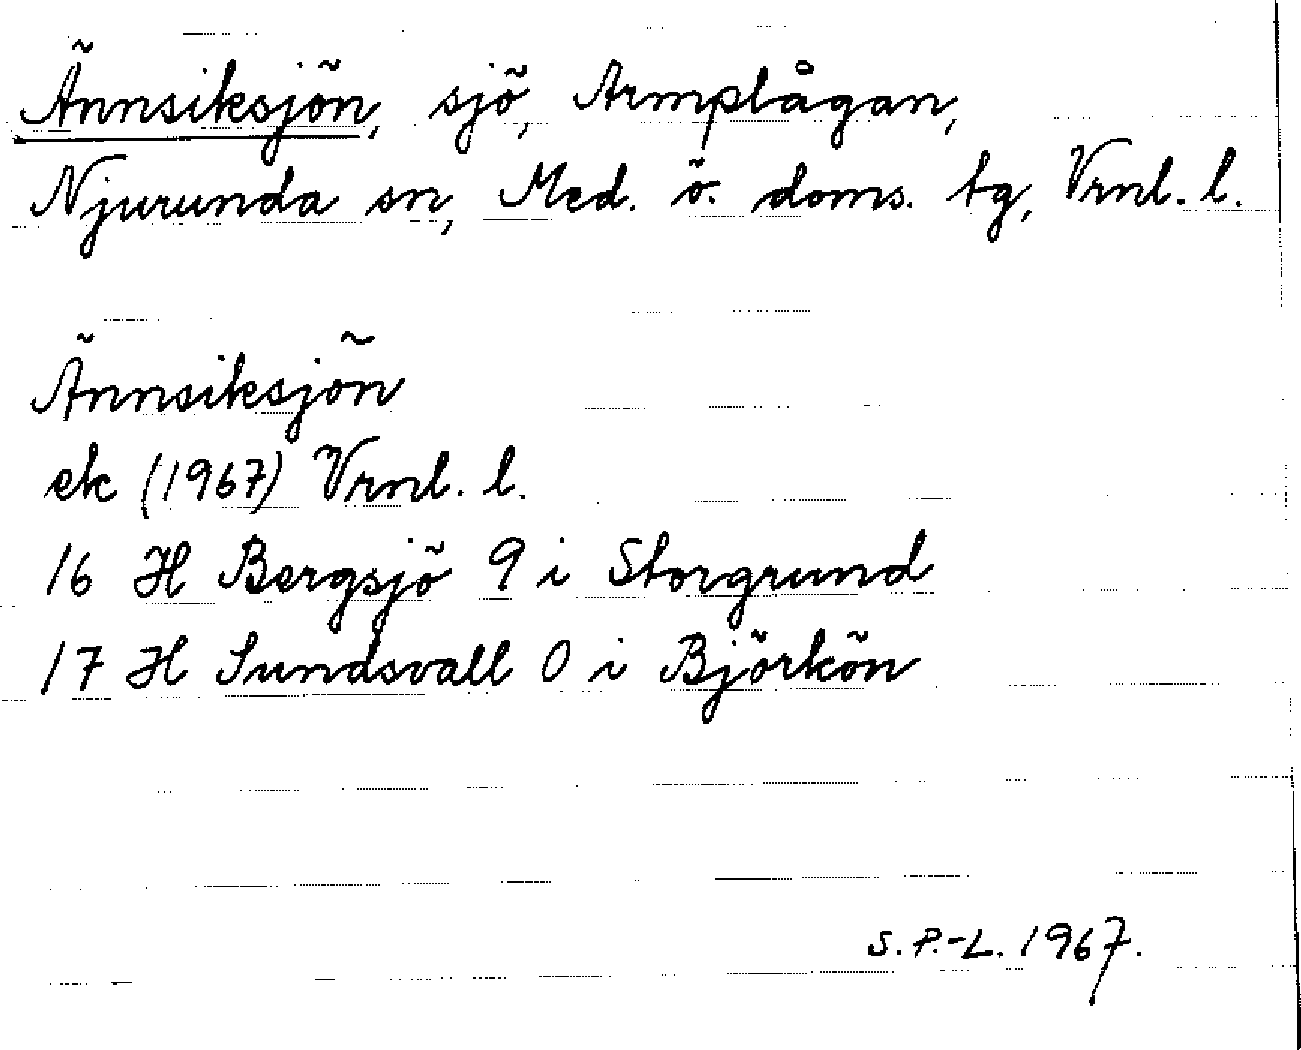 Ännsiksjön, sjö, Armplågan,
Njurunda sn, Med. ö. doms. tg, Vrnl. l.
Ännsiksjön
ek (1967) Vrnl. l.
16 H Bergsjö 9 i Storgrund
17 H Sundsvall 0 i Björkön
S.P.-L. 1967.